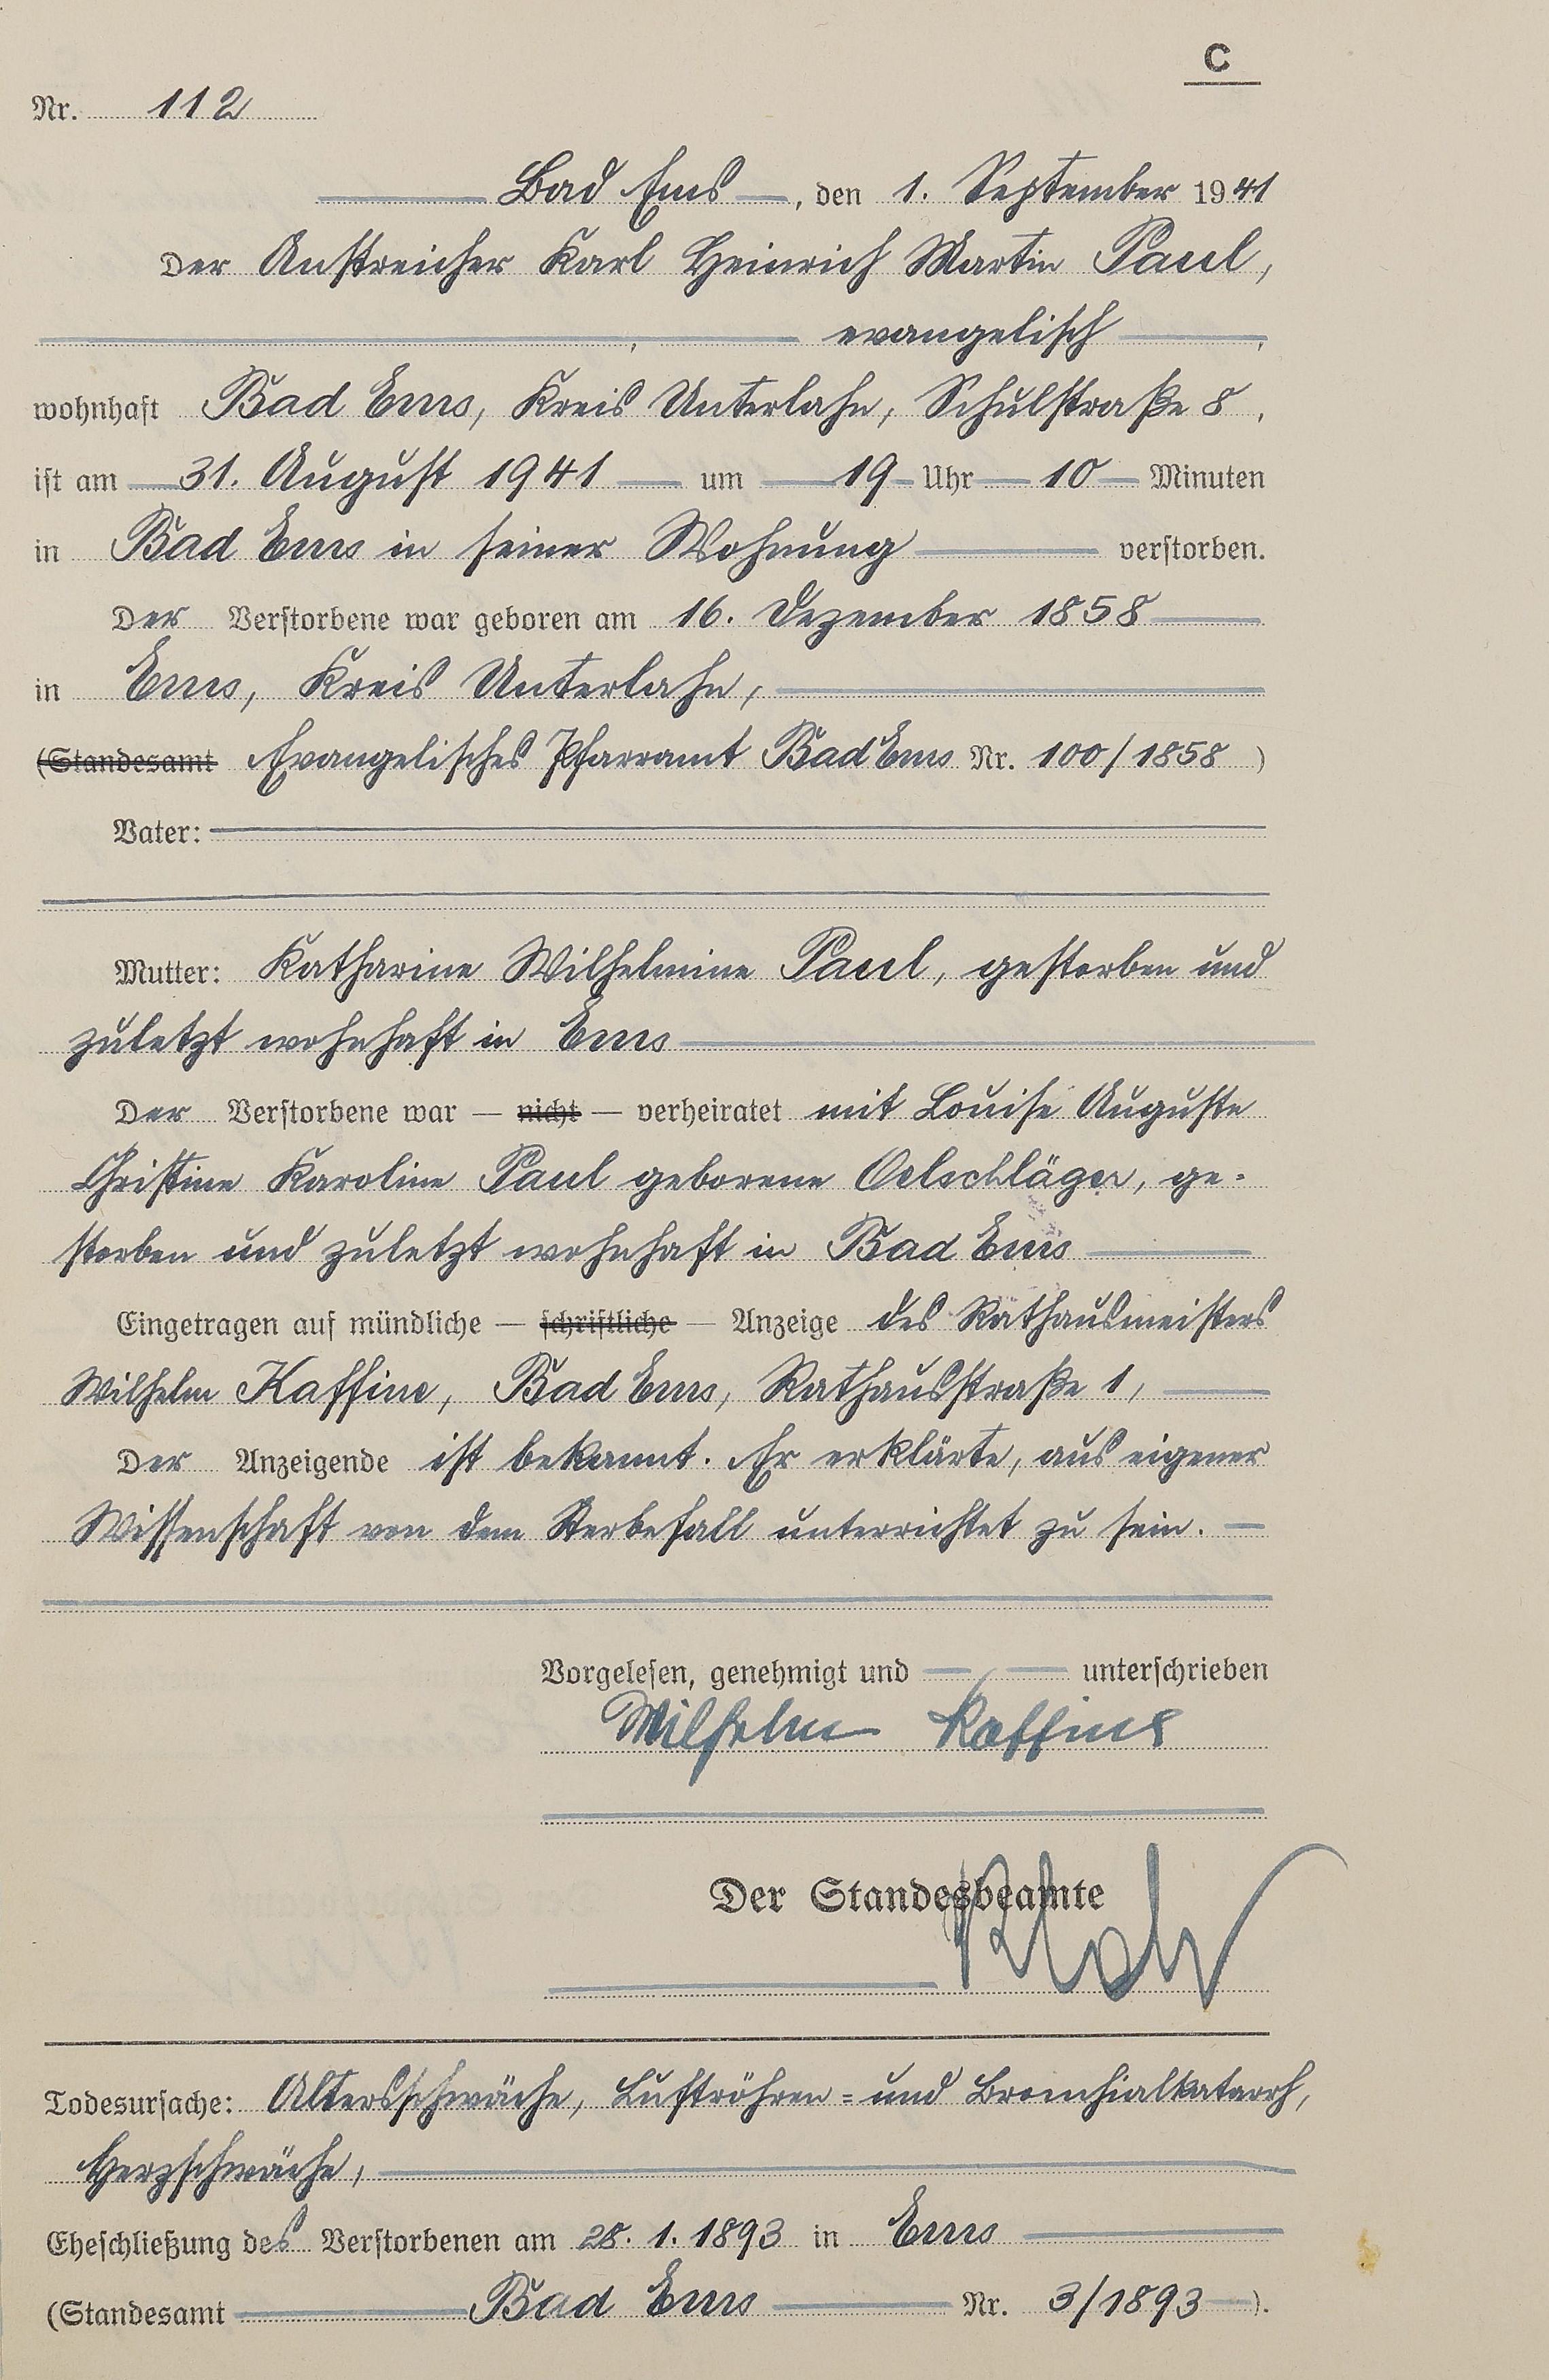 C
Nr. 112
Bad Ems, den 1. September 1941
Der Anstreicher Karl Heinrich Martin Paul,
, evangelisch,
wohnhaft Bad Ems, Kreis Unterlahn, Schulstraße 8,
ist am 31. August 1941 um 19 Uhr 10 Minuten
in Bad Ems in seiner Wohnung verstorben.
Der Verstorbene war geboren am 16. Dezember 1858
in Ems, Kreis Unterlahn,
(Standesamt Evangelisches Pfarramt Bad Ems Nr. 100/1858)
Vater:
Mutter: Katharine Wilhelmine Paul, gestorben und
zuletzt wohnhaft in Ems
Der Verstorbene war — nicht — verheiratet mit Louise Auguste
Christine Karoline Paul geborene Oelschläger, ge-
storben und zuletzt wohnhaft in Bad Ems
Eingetragen auf mündliche — schriftliche — Anzeige des Rathausmeisters
Wilhelm Kaffine, Bad Ems, Rathausstraße 1,
Der Anzeigende ist bekannt. Er erklärte, aus eigener
Wissenschaft von dem Sterbefall unterrichtet zu sein.
Vorgelesen, genehmigt und unterschrieben
Wilhelm Kaffine
Der Standesbeamte
Todesursache: Altersschwäche, Luftröhren- und Bronchialkatarrh,
Herzschwäche,
Eheschließung des Verstorbenen am 28. 1. 1893 in Ems
(Standesamt Bad Ems Nr. 3/1893).